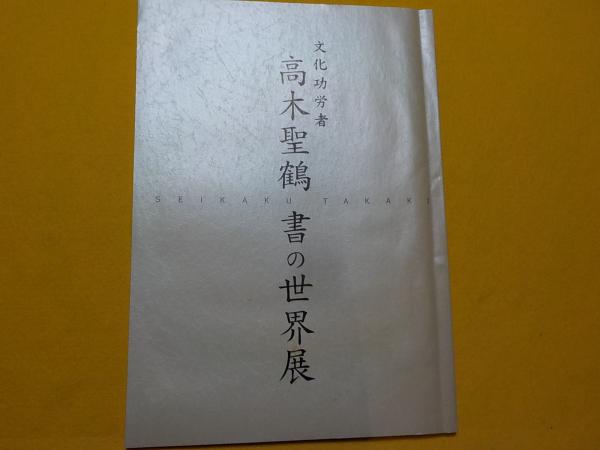 文化功労者
高木聖鶴 書の世界展
SEIKAKU TAKAKI